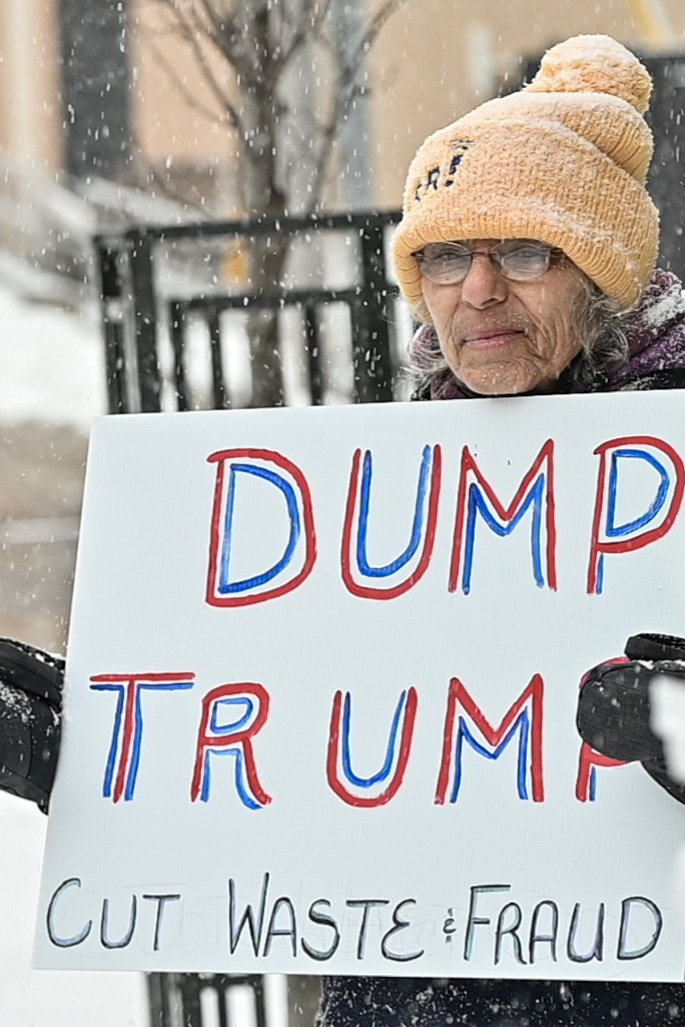 DUMP
TRUMP
CUT WASTE & FRAUD